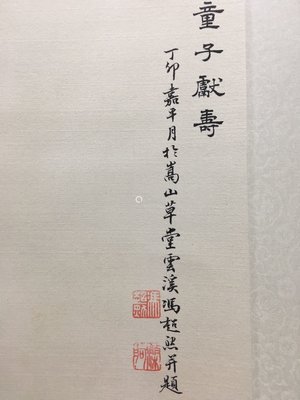 童子獻壽
丁卯嘉平月於嵩山草堂雲溪馮超然并題